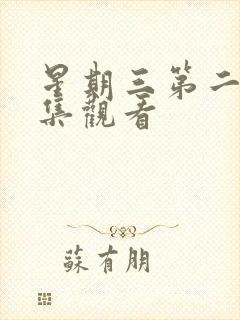 星期三第二
集觀看
蘇有朋